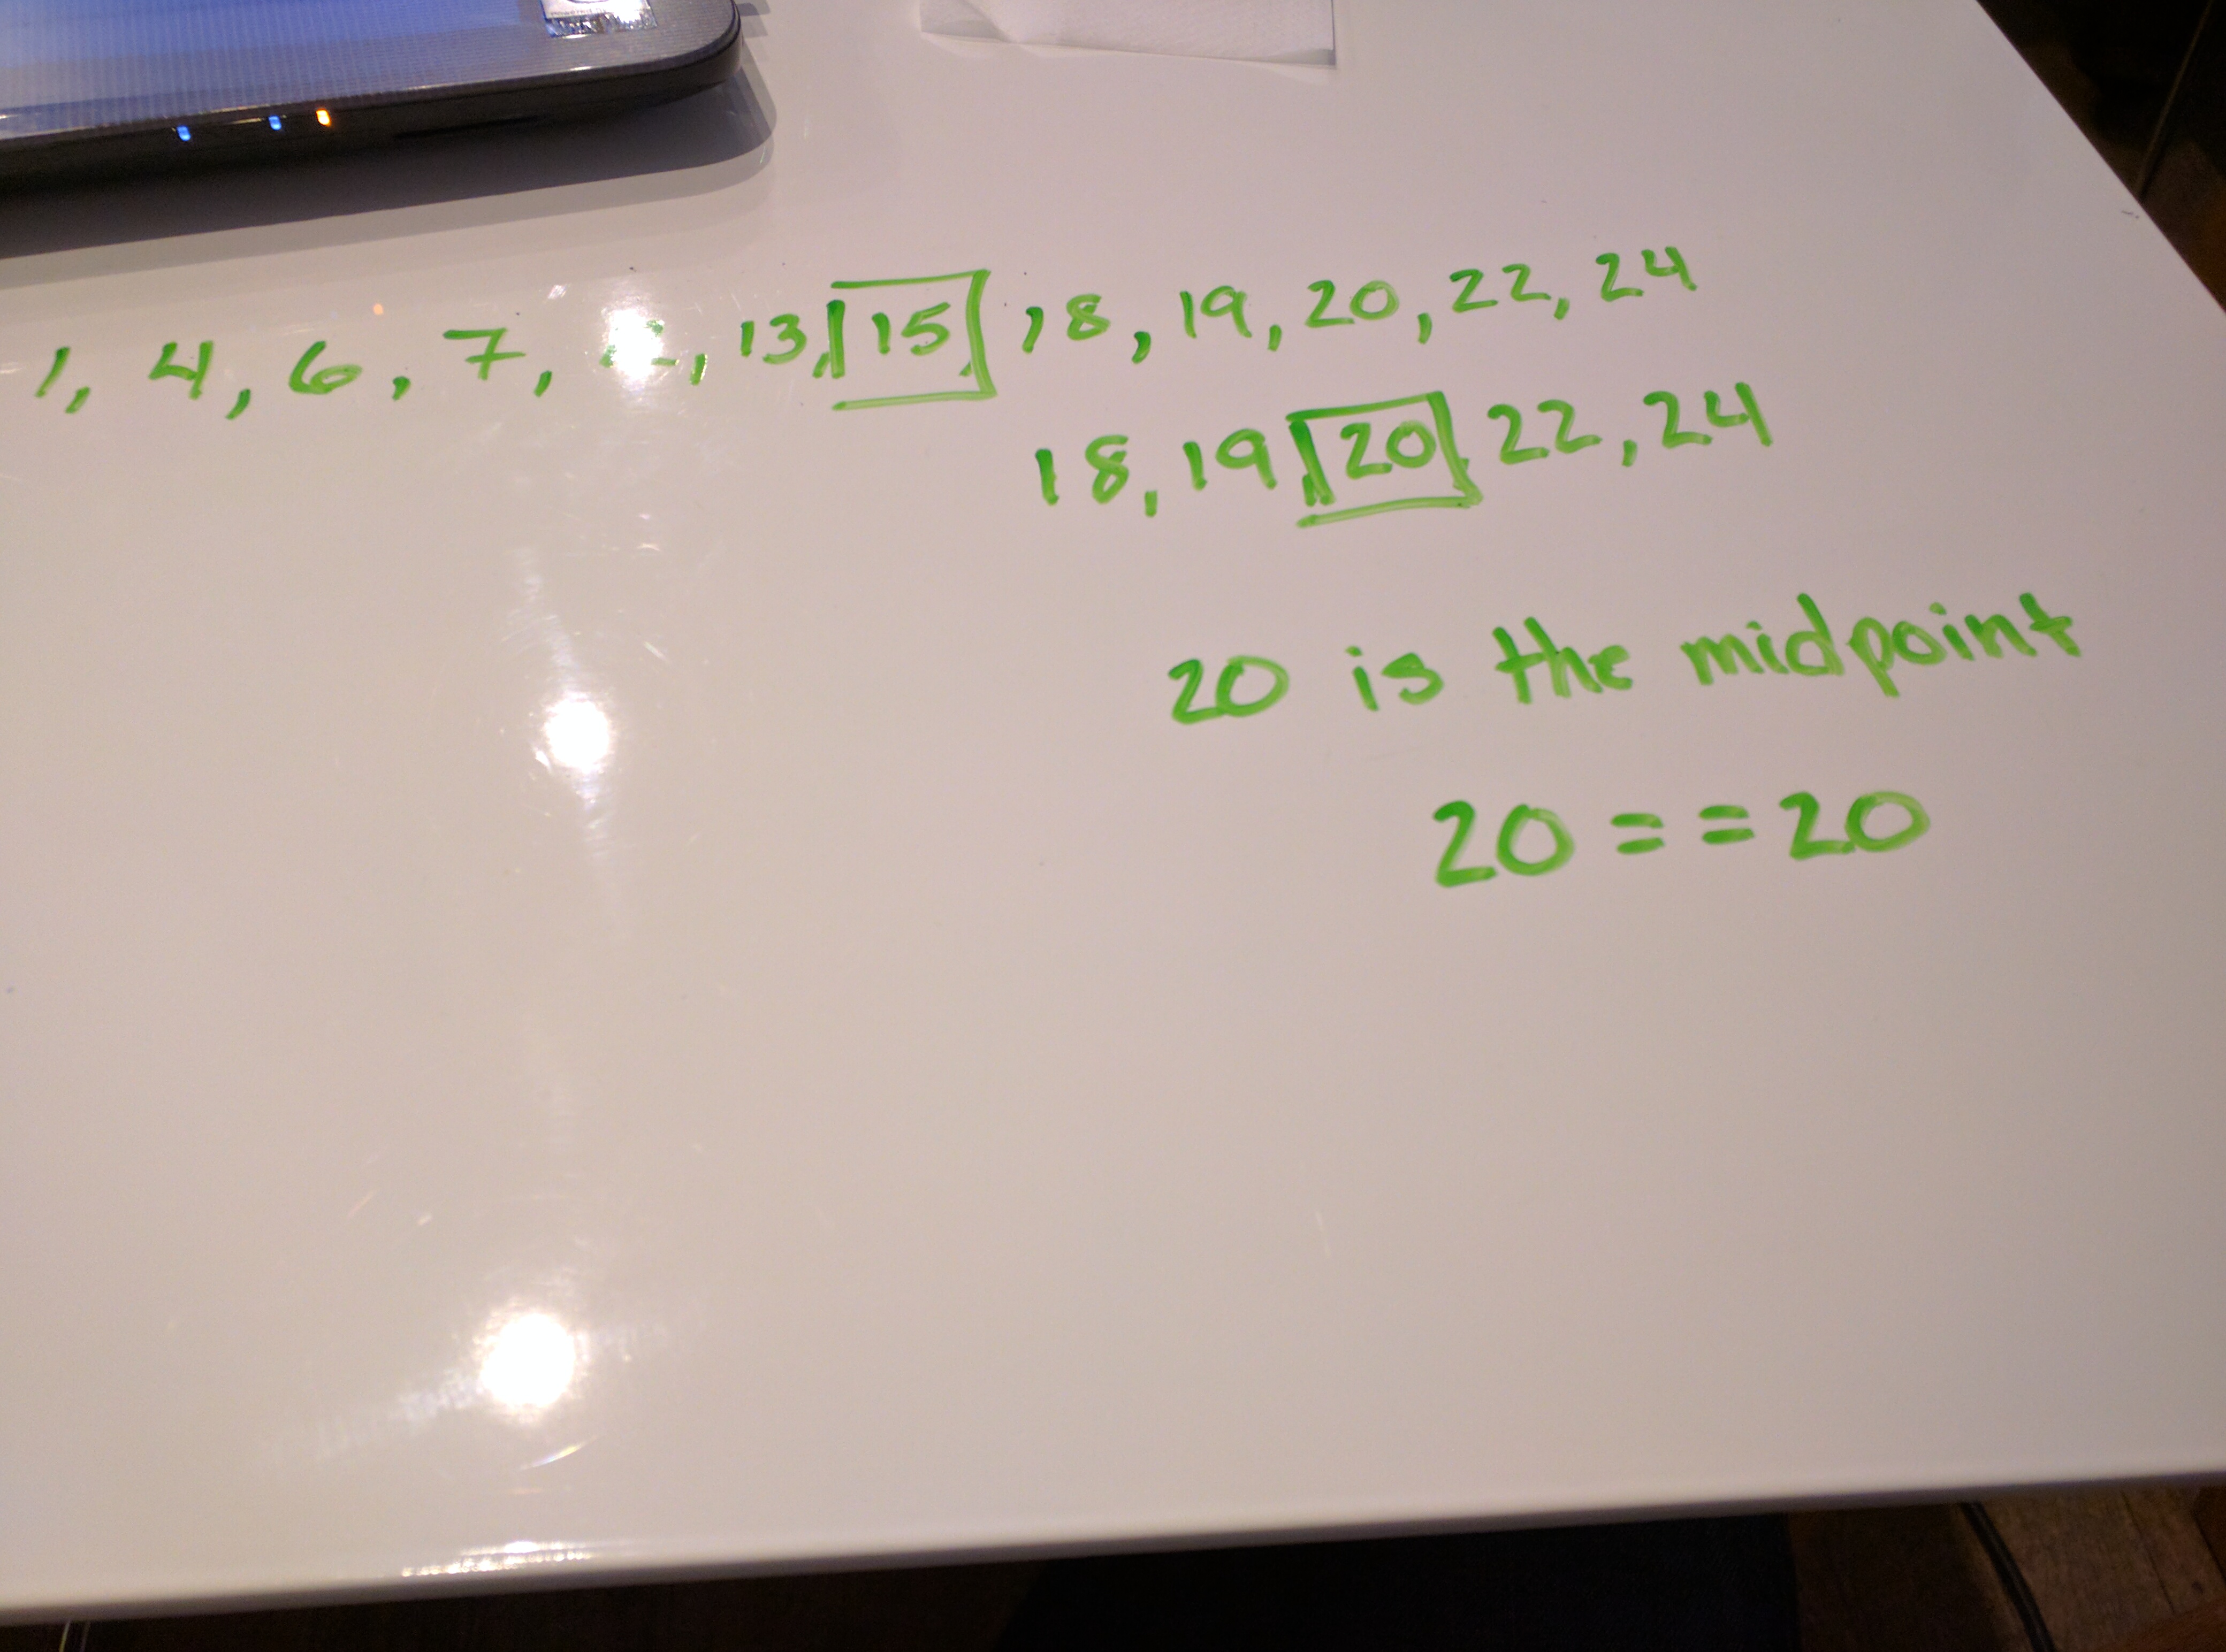 1, 4, 6, 7, , 13, 15, 18, 19, 20, 22, 24
18, 19, 20, 22, 24
20 is the midpoint
20 == 20